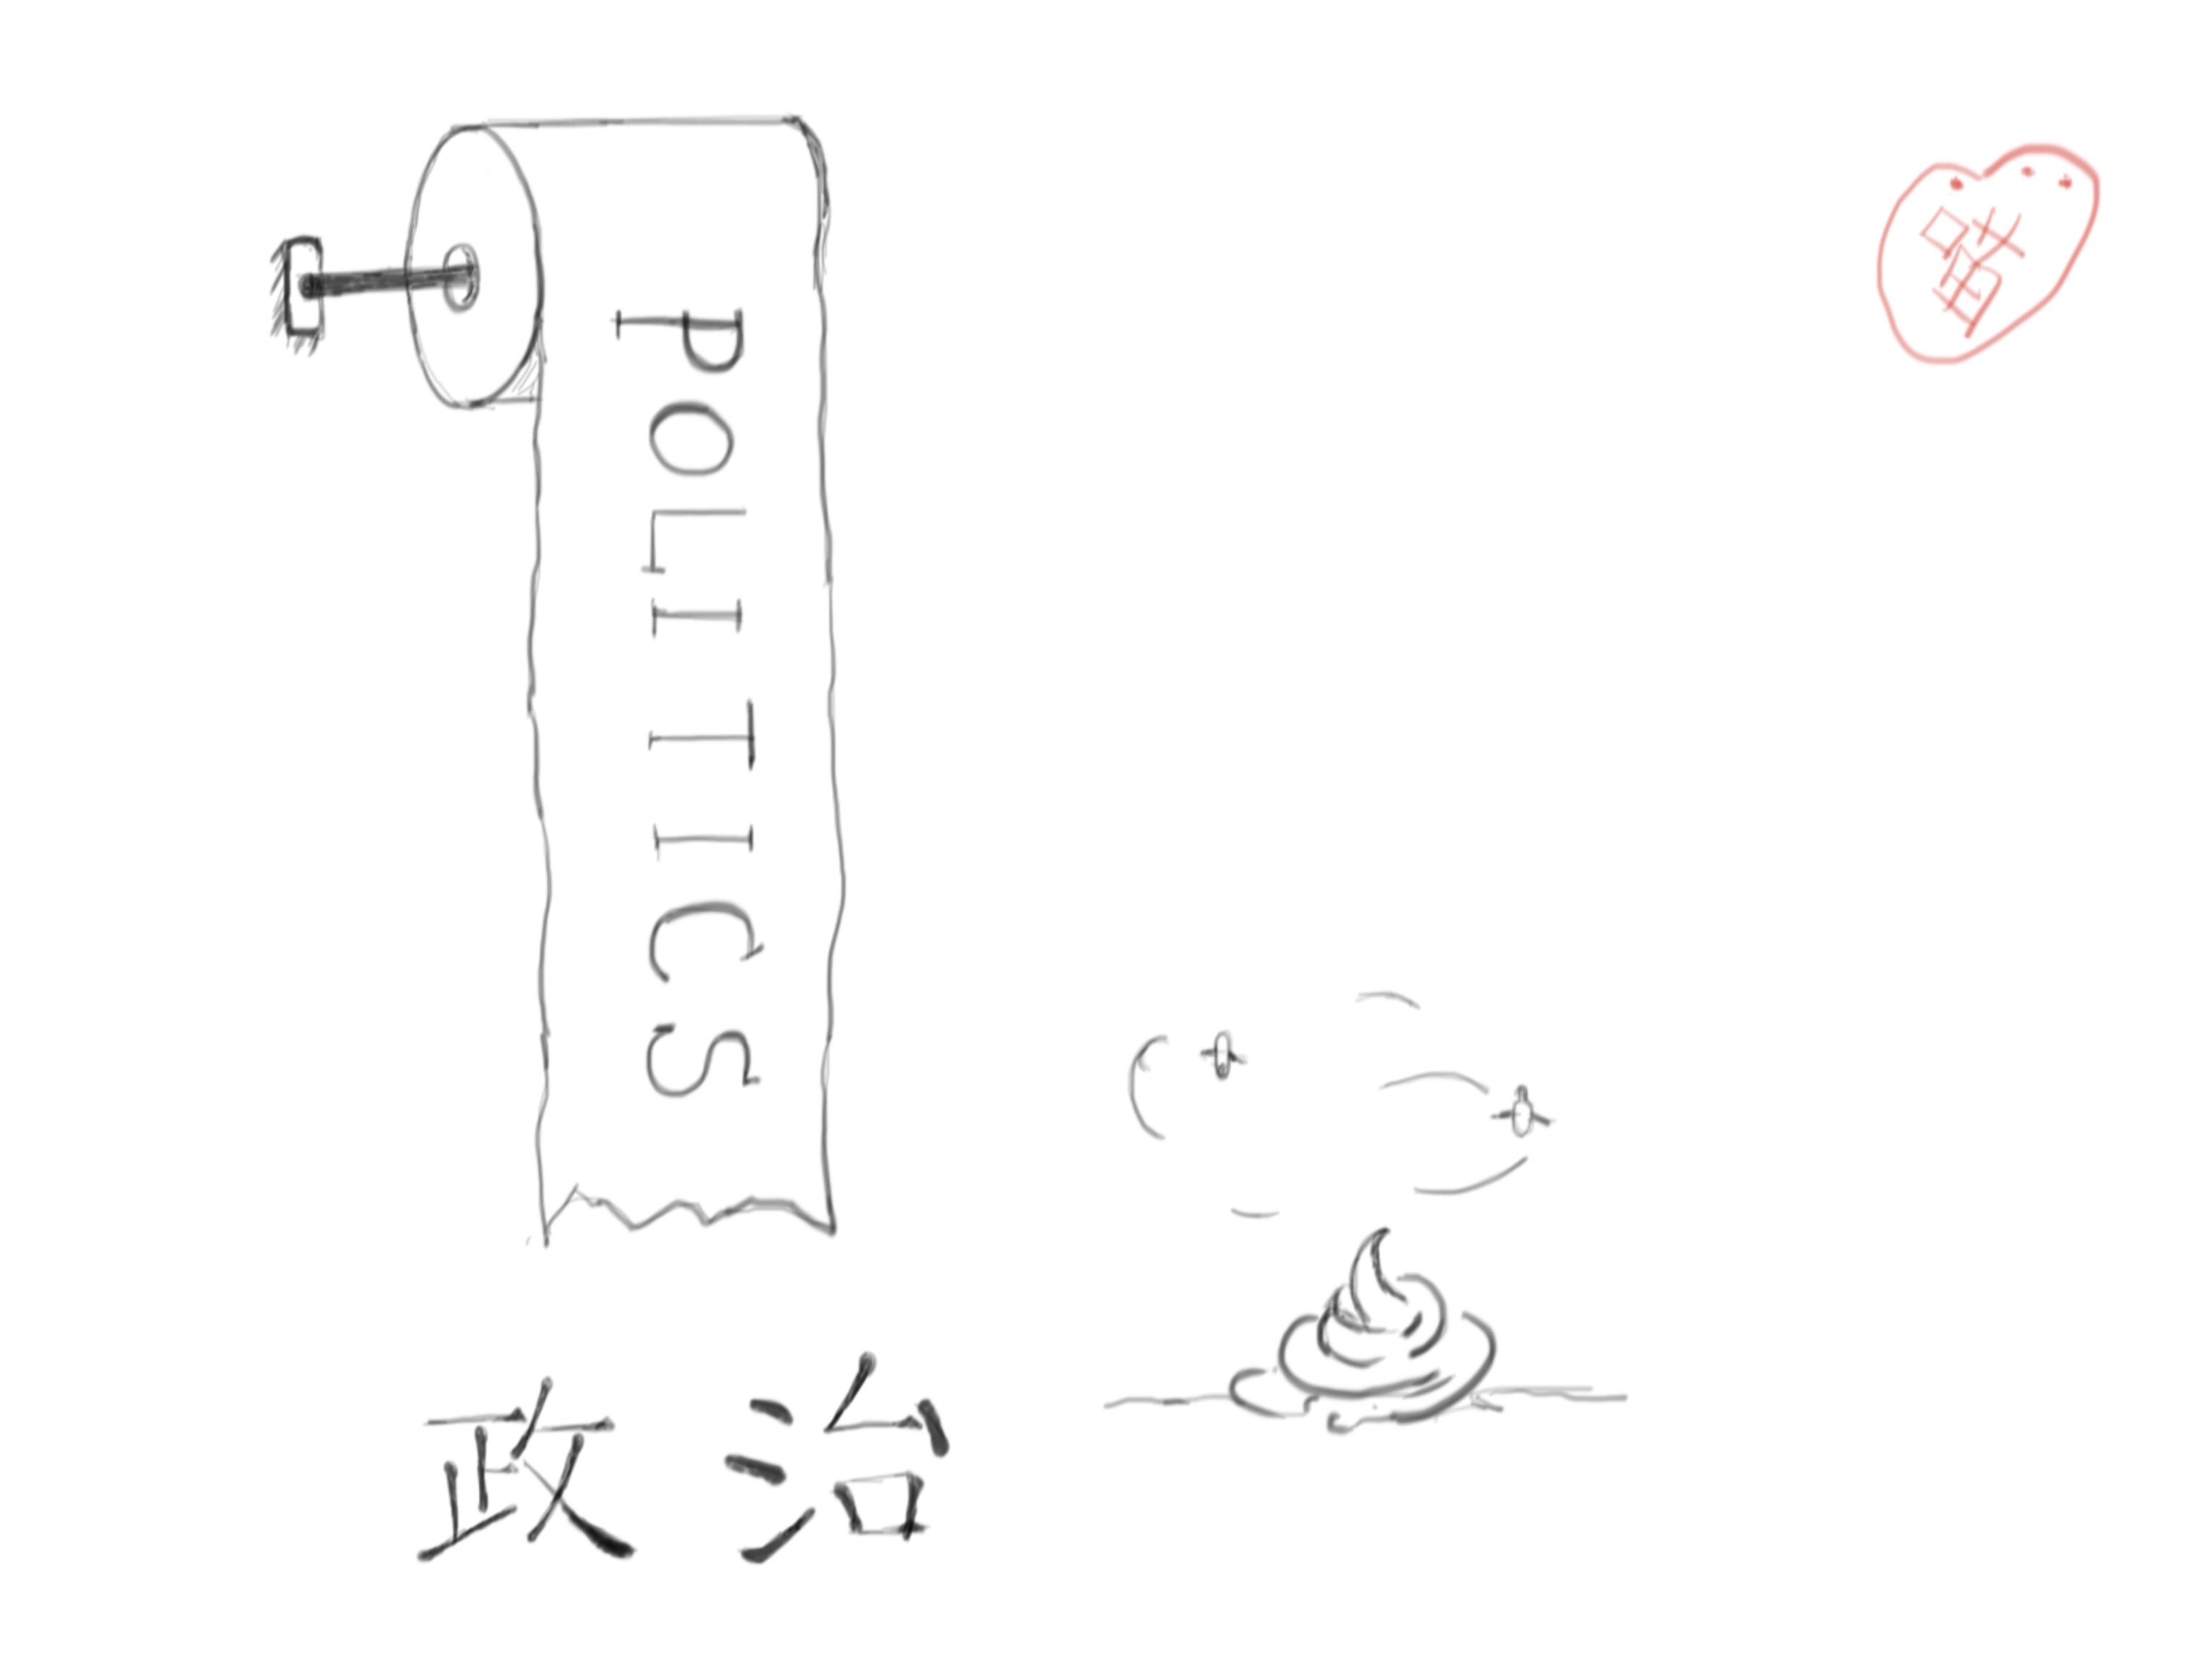 POLITICS
政治